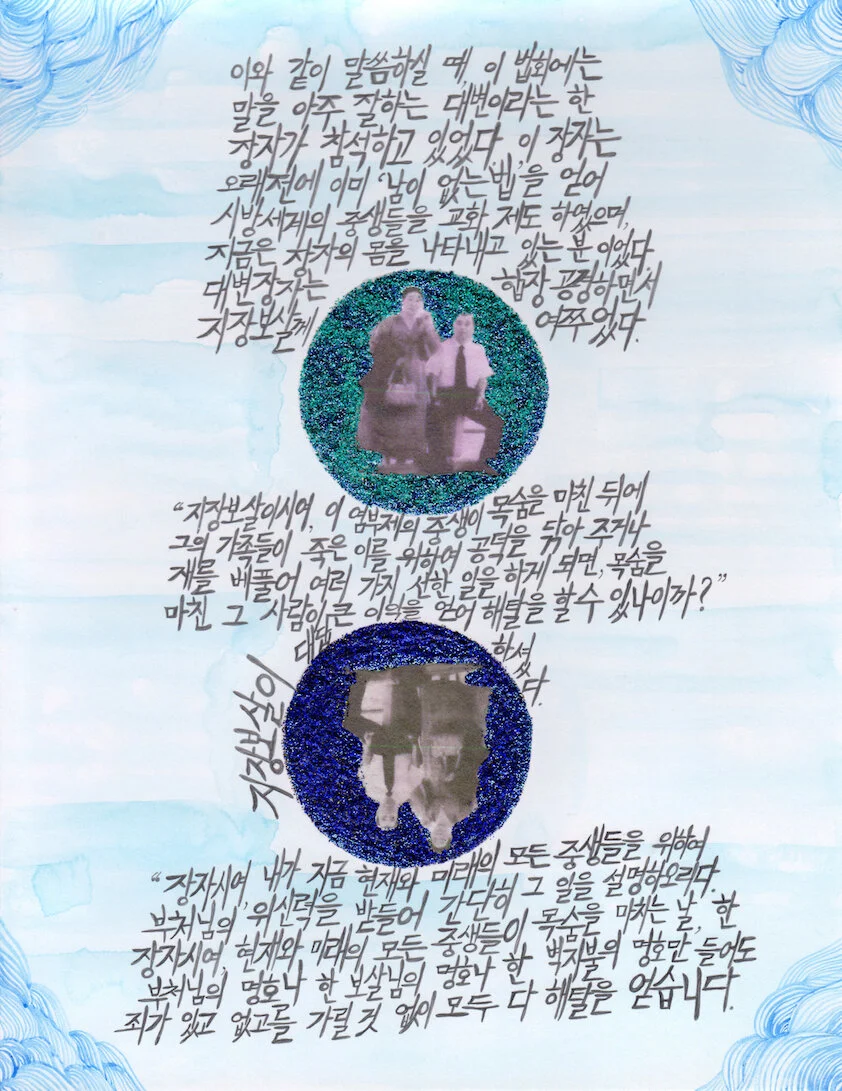 이와 같이 말씀하실 때, 이 법회에는
말을 아주 잘하는 대변이라는 한
장자가 참석하고 있었다. 이 장자는
오래전에 이미 '남이 없는 법'을 얻어
시방세계의 중생들을 교화 제도 하였으며,
지금은 장자의 몸을 나타내고 있는 분이었다.
대변장자는 합장 공경하면서
지장보살께 여쭈었다.
"지장보살이시여, 이 염부제의 중생이 목숨을 마친 뒤에
그의 가족들이 죽은 이를 위하여 공덕을 닦아 주거나
재를 베풀어 여러 가지 선한 일을 하게 되면, 목숨을
마친 그 사람이 큰 이익을 얻어 해탈을 할 수 있나이까?"
지장보살이
대답 하셨다.
"장자시여, 내가 지금 현재와 미래의 모든 중생들을 위하여
부처님의 위신력을 받들어 간단히 그 일을 설명하오리다.
장자시여, 현재와 미래의 모든 중생들이 목숨을 마치는 날, 한
부처님의 명호나 한 보살님의 명호나 한 벽지불의 명호만 들어도
죄가 있고 없고를 가릴 것 없이 모두 다 해탈을 얻습니다.